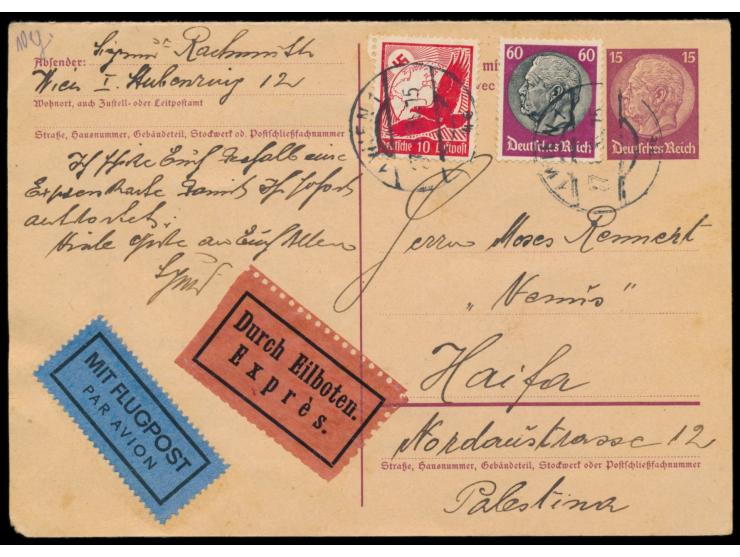 Absender: Rachmuth
Wien I. Stubenring 12
Wohnort, auch Zustell- oder Leitpostamt
Straße, Hausnummer, Gebäudeteil, Stockwerk od. Postschließfachnummer
Ich schicke Euch eine
Expresskarte damit Ihr sofort
antwortet.
Viele an Euch Allen
10 Luftpost
60 60
Deutsches Reich
15 15
Deutsches Reich
WIEN 1
Herrn Moses Rennert
"Venus"
Haifa
Nordaustrasse 12
Straße, Hausnummer, Gebäudeteil, Stockwerk oder Postschließfachnummer
Palestina
Durch Eilboten.
Exprès.
MIT FLUGPOST
PAR AVION